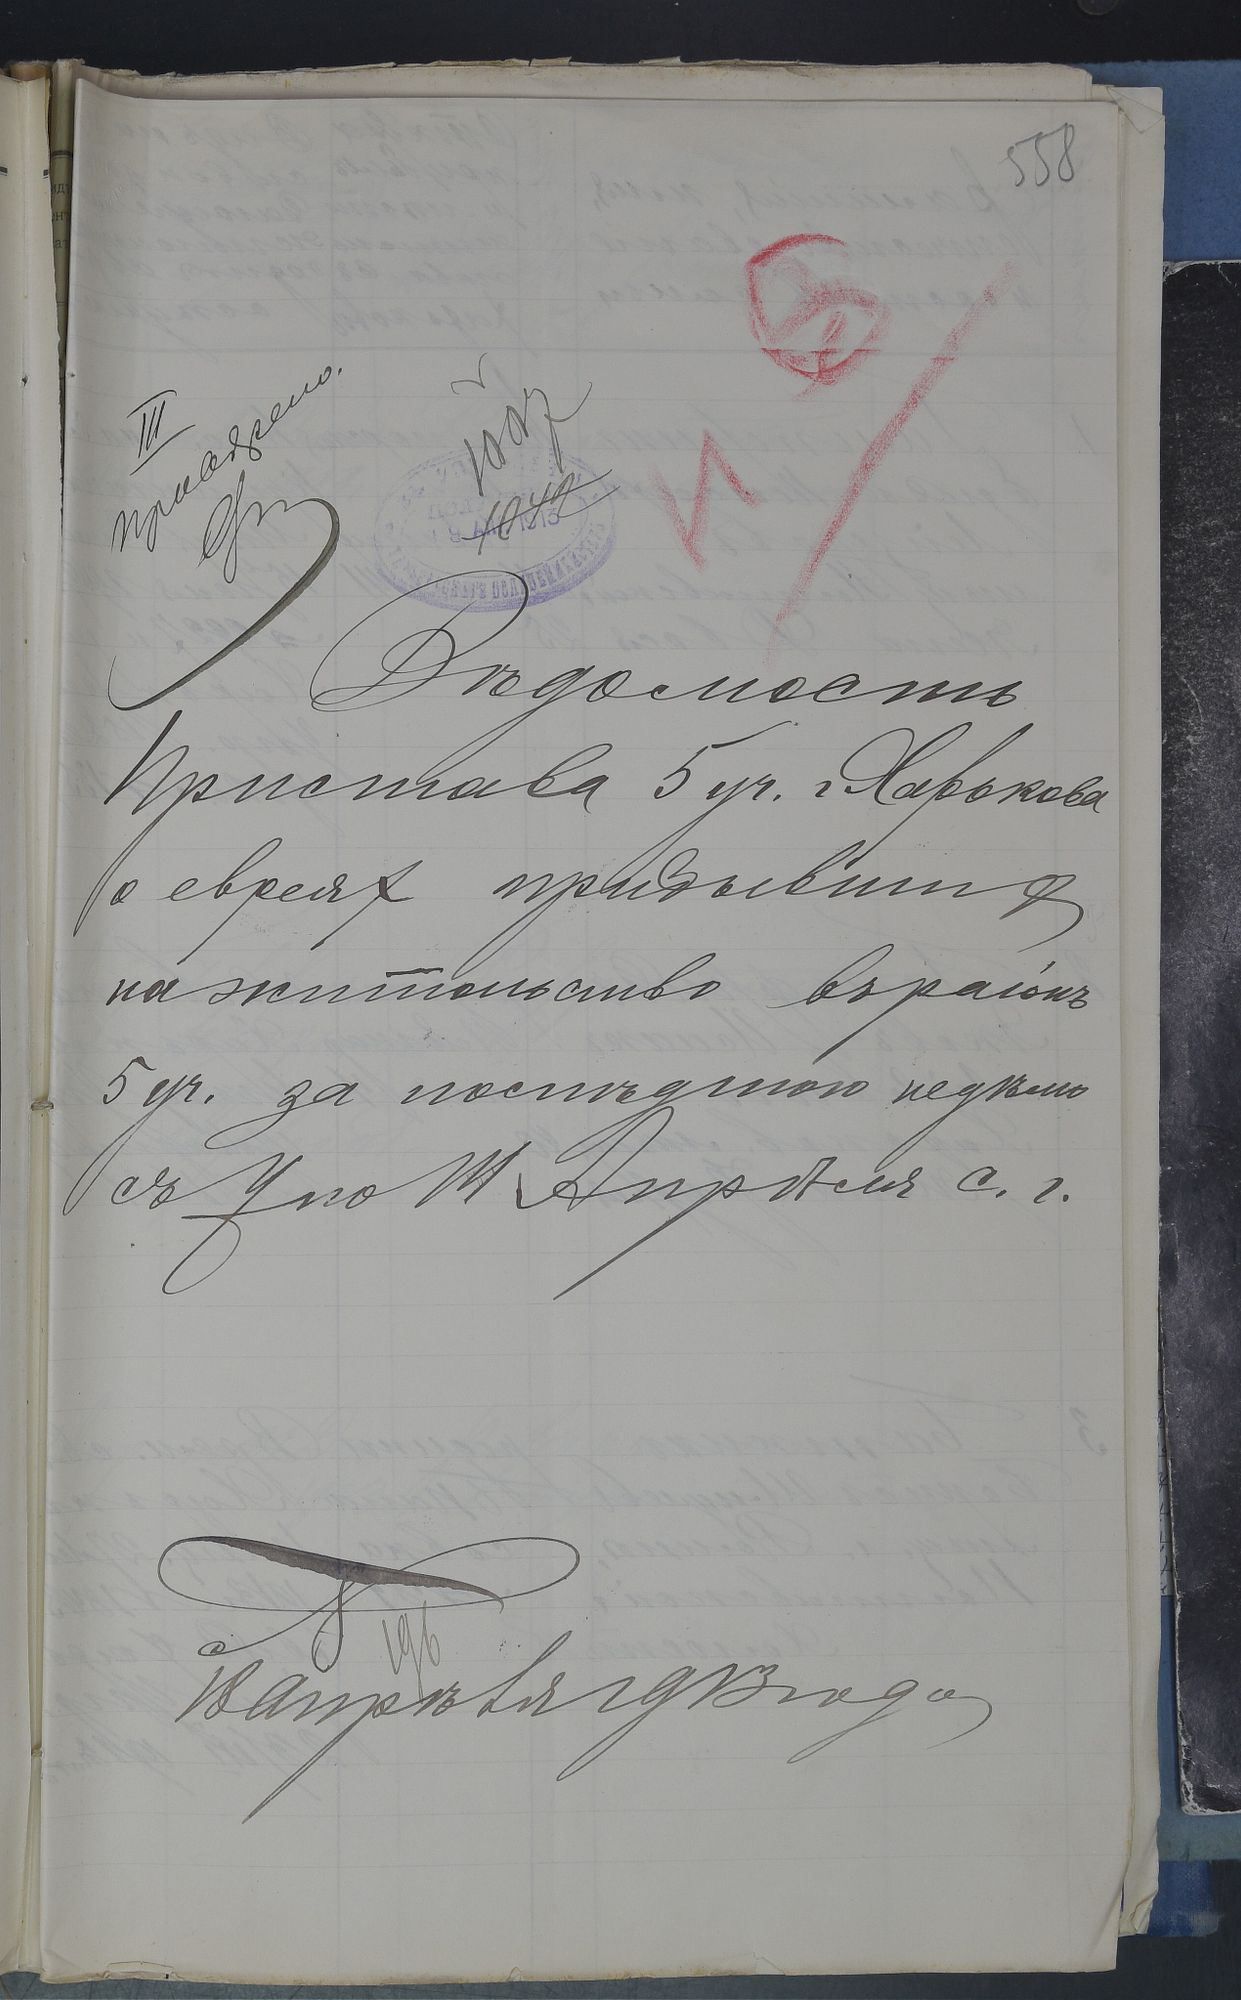 558
III
1087
1042
Вѣдомость
Пристава 5 уч. г. Харькова
о евреях прибывших
на жительство въ районъ
5 уч. за послѣднюю недѣлю
съ 4 по 11 Апрѣля с. г.
196
Апрѣля 1913 года